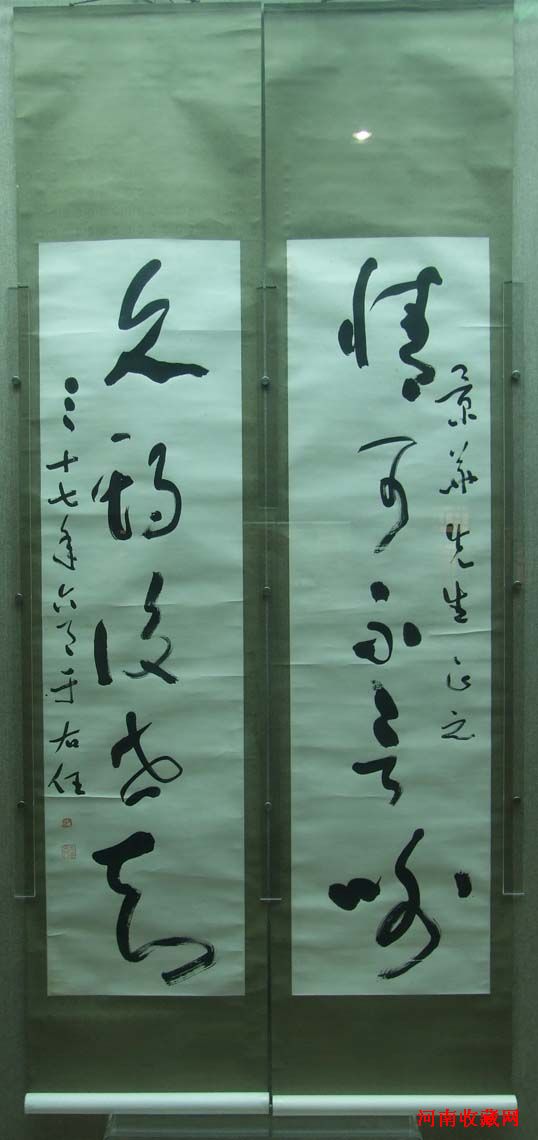 景華先生正之
情可不言喻
文期後世知
三十七年六月于右任
河南收藏网